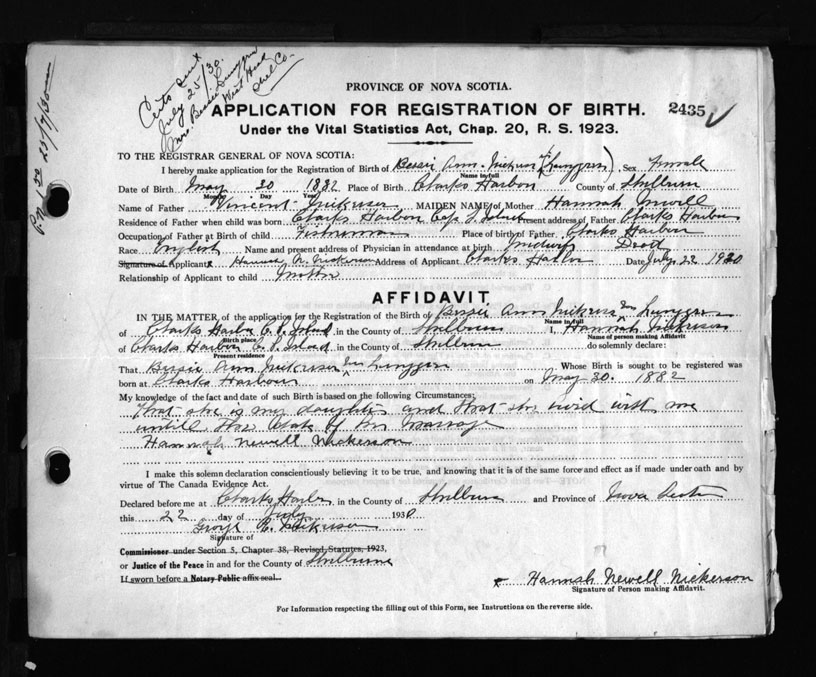 Certs sent
July 25/30
Mrs Bessie
West Head
Shel Co.
25/7/30
PROVINCE OF NOVA SCOTIA.
APPLICATION FOR REGISTRATION OF BIRTH. 2435
Under the Vital Statistics Act, Chap. 20, R. S. 1923.
TO THE REGISTRAR GENERAL OF NOVA SCOTIA:
I hereby make application for the Registration of Birth of Bessie Ann Nickerson Sex Female
Name in full
Date of Birth May 30 1882 Place of Birth Clarks Harbor County of Shelburne
Month Day Year
Name of Father Vincent Nickerson MAIDEN NAME of Mother Hannah Newell
Residence of Father when child was born Clarks Harbor Cape S. Island Present address of Father Clarks Harbor
Occupation of Father at Birth of child Fisherman Place of birth of Father Clarks Harbor
Race English Name and present address of Physician in attendance at birth Midwife Dead
Signature of Applicant Hannah N. Nickerson Address of Applicant Clarks Harbor Date July 22 1930
Relationship of Applicant to child Mother
AFFIDAVIT
IN THE MATTER of the application for the Registration of the Birth of Bessie Ann Nickerson now
Name in full
of Clarks Harbor C. S. Island in the County of Shelburne I, Hannah Nickerson
Birth place Name of person making Affidavit
of Clarks Harbor C. S. Island in the County of Shelburne do solemnly declare:
Present residence
That Bessie Ann Nickerson now Whose Birth is sought to be registered was
born at Clarks Harbour on May 30. 1882
My knowledge of the fact and date of such Birth is based on the following Circumstances:
That she is my daughter and that she lived with me
untill the date of her marrage
Hannah Newell Nickerson
I make this solemn declaration conscientiously believing it to be true, and knowing that it is of the same force and effect as if made under oath and by
virtue of The Canada Evidence Act.
Declared before me at Clarks Harbor in the County of Shelburne and Province of Nova Scotia
this 22 day of July 1930
George E. Nickerson
Signature of
Commissioner under Section 5, Chapter 38, Revised Statutes, 1923,
or Justice of the Peace in and for the County of Shelburne
If sworn before a Notary Public affix seal.
x Hannah Newell Nickerson
Signature of Person making Affidavit.
For Information respecting the filling out of this Form, see Instructions on the reverse side.